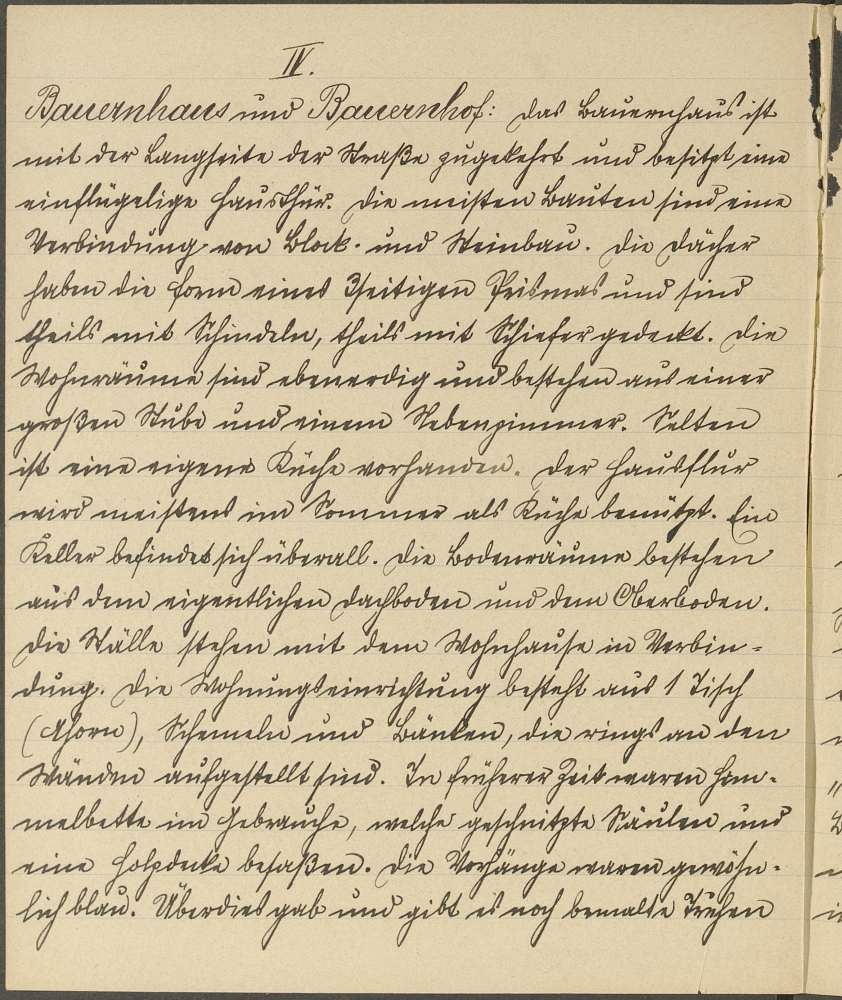 IV.
Bauernhaus und Bauernhof: Das Bauernhaus ist
mit der Langseite der Straße zugekehrt und besitzt eine
einflügelige Hausthür. Die meisten Bauten sind eine
Verbindung von Block- und Steinbau. Die Dächer
haben die Form eines 3seitigen Prismas und sind
theils mit Schindeln, theils mit Schiefer gedeckt. Die
Wohnräume sind ebenerdig und bestehen aus einer
großen Stube und einem Nebenzimmer. Selten
ist eine eigene Küche vorhanden. Der Hausflur
wird meistens im Sommer als Küche benützt. Ein
Keller befindet sich überall. Die Bodenräume bestehen
aus dem eigentlichen Dachboden und dem Oberboden.
Die Ställe stehen mit dem Wohnhause in Verbin-
dung. Die Wohnungseinrichtung besteht aus 1 Tisch
(Ahorn), Schemeln und Bänken, die rings an den
Wänden aufgestellt sind. In früherer Zeit waren Him-
melbette im Gebrauche, welche geschnitzte Säulen und
eine Holzdecke besaßen. Die Vorhänge waren gewöhn-
lich blau. Überdies gab und gibt es noch bemalte Truhen